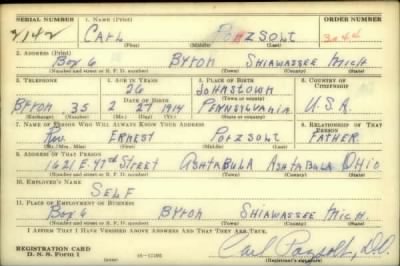 SERIAL NUMBER 1. NAME (Print) ORDER NUMBER
2142 CARL PORZSOLT 3044
(First) (Middle) (Last)
2. ADDRESS (Print)
BOX 6 BYRON SHIAWASSEE MICH
(Number and street or R. F. D. number) (Town) (County) (State)
3. TELEPHONE 4. AGE IN YEARS 5. PLACE OF BIRTH 6. COUNTRY OF CITIZENSHIP
26 JOHNSTOWN
DATE OF BIRTH
BYRON 35 2 27 1914 PENNSYLVANIA U.S.A.
(Exchange) (Number) (Mo.) (Day) (Yr.) (State or country)
7. NAME OF PERSON WHO WILL ALWAYS KNOW YOUR ADDRESS 8. RELATIONSHIP OF THAT PERSON
REV. ERNEST PORZSOLT FATHER
(Mr., Mrs., Miss) (First) (Middle) (Last)
9. ADDRESS OF THAT PERSON
1621 E. 47th STREET ASHTABULA ASHTABULA OHIO
(Number and street or R. F. D. number) (Town) (County) (State)
10. EMPLOYER'S NAME
SELF
11. PLACE OF EMPLOYMENT OR BUSINESS
BOX 6 BYRON SHIAWASSEE MICH.
(Number and street or R. F. D. number) (Town) (County) (State)
I AFFIRM THAT I HAVE VERIFIED ABOVE ANSWERS AND THAT THEY ARE TRUE.
REGISTRATION CARD
D. S. S. Form 1 Carl Porzsolt, D.O.
(Registrant's signature)